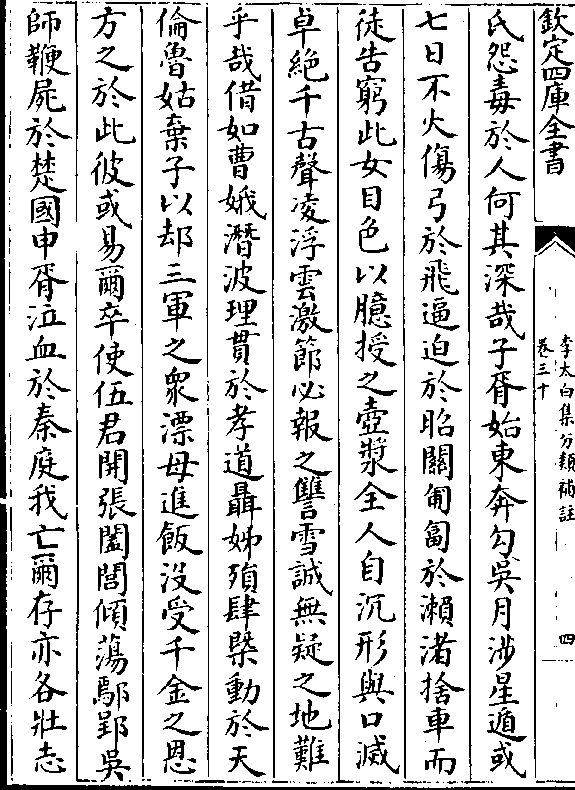 欽定四庫全書
李太白集分類補註
卷三十
四
氏怨毒於人何其深哉子胥始東奔勾吳月涉星遁或
七日不火傷弓於飛逼迫於昭關匍匐於瀨渚捨車而
徒告窮此女目色以臆授之壺漿全人自沉形與口滅
卓絶千古聲凌浮雲激節必報之讐雪誠無疑之地難
乎哉借如曹娥潛波理貫於孝道聶姊殞肆槩動於天
倫魯姑棄子以却三軍之衆漂母進飯沒受千金之恩
方之於此彼或易爾卒使伍君開張闔閭傾蕩鄢郢吳
師鞭屍於楚國申胥泣血於秦庭我亡爾存亦各壯志